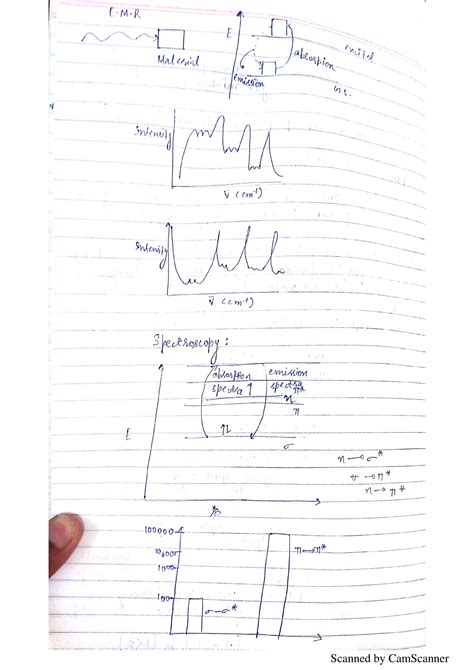 E.M.R
Material
E
absorption
emission
excited
Intensity
ṽ (cm⁻¹)
Intensity
ṽ (cm⁻¹)
Spectroscopy :
absorption
spectra
emission
spectra
n
π
E
σ
n → σ*
π → π*
n → π*
100000
10000
1000
100
π → π*
σ → σ*
Scanned by CamScanner